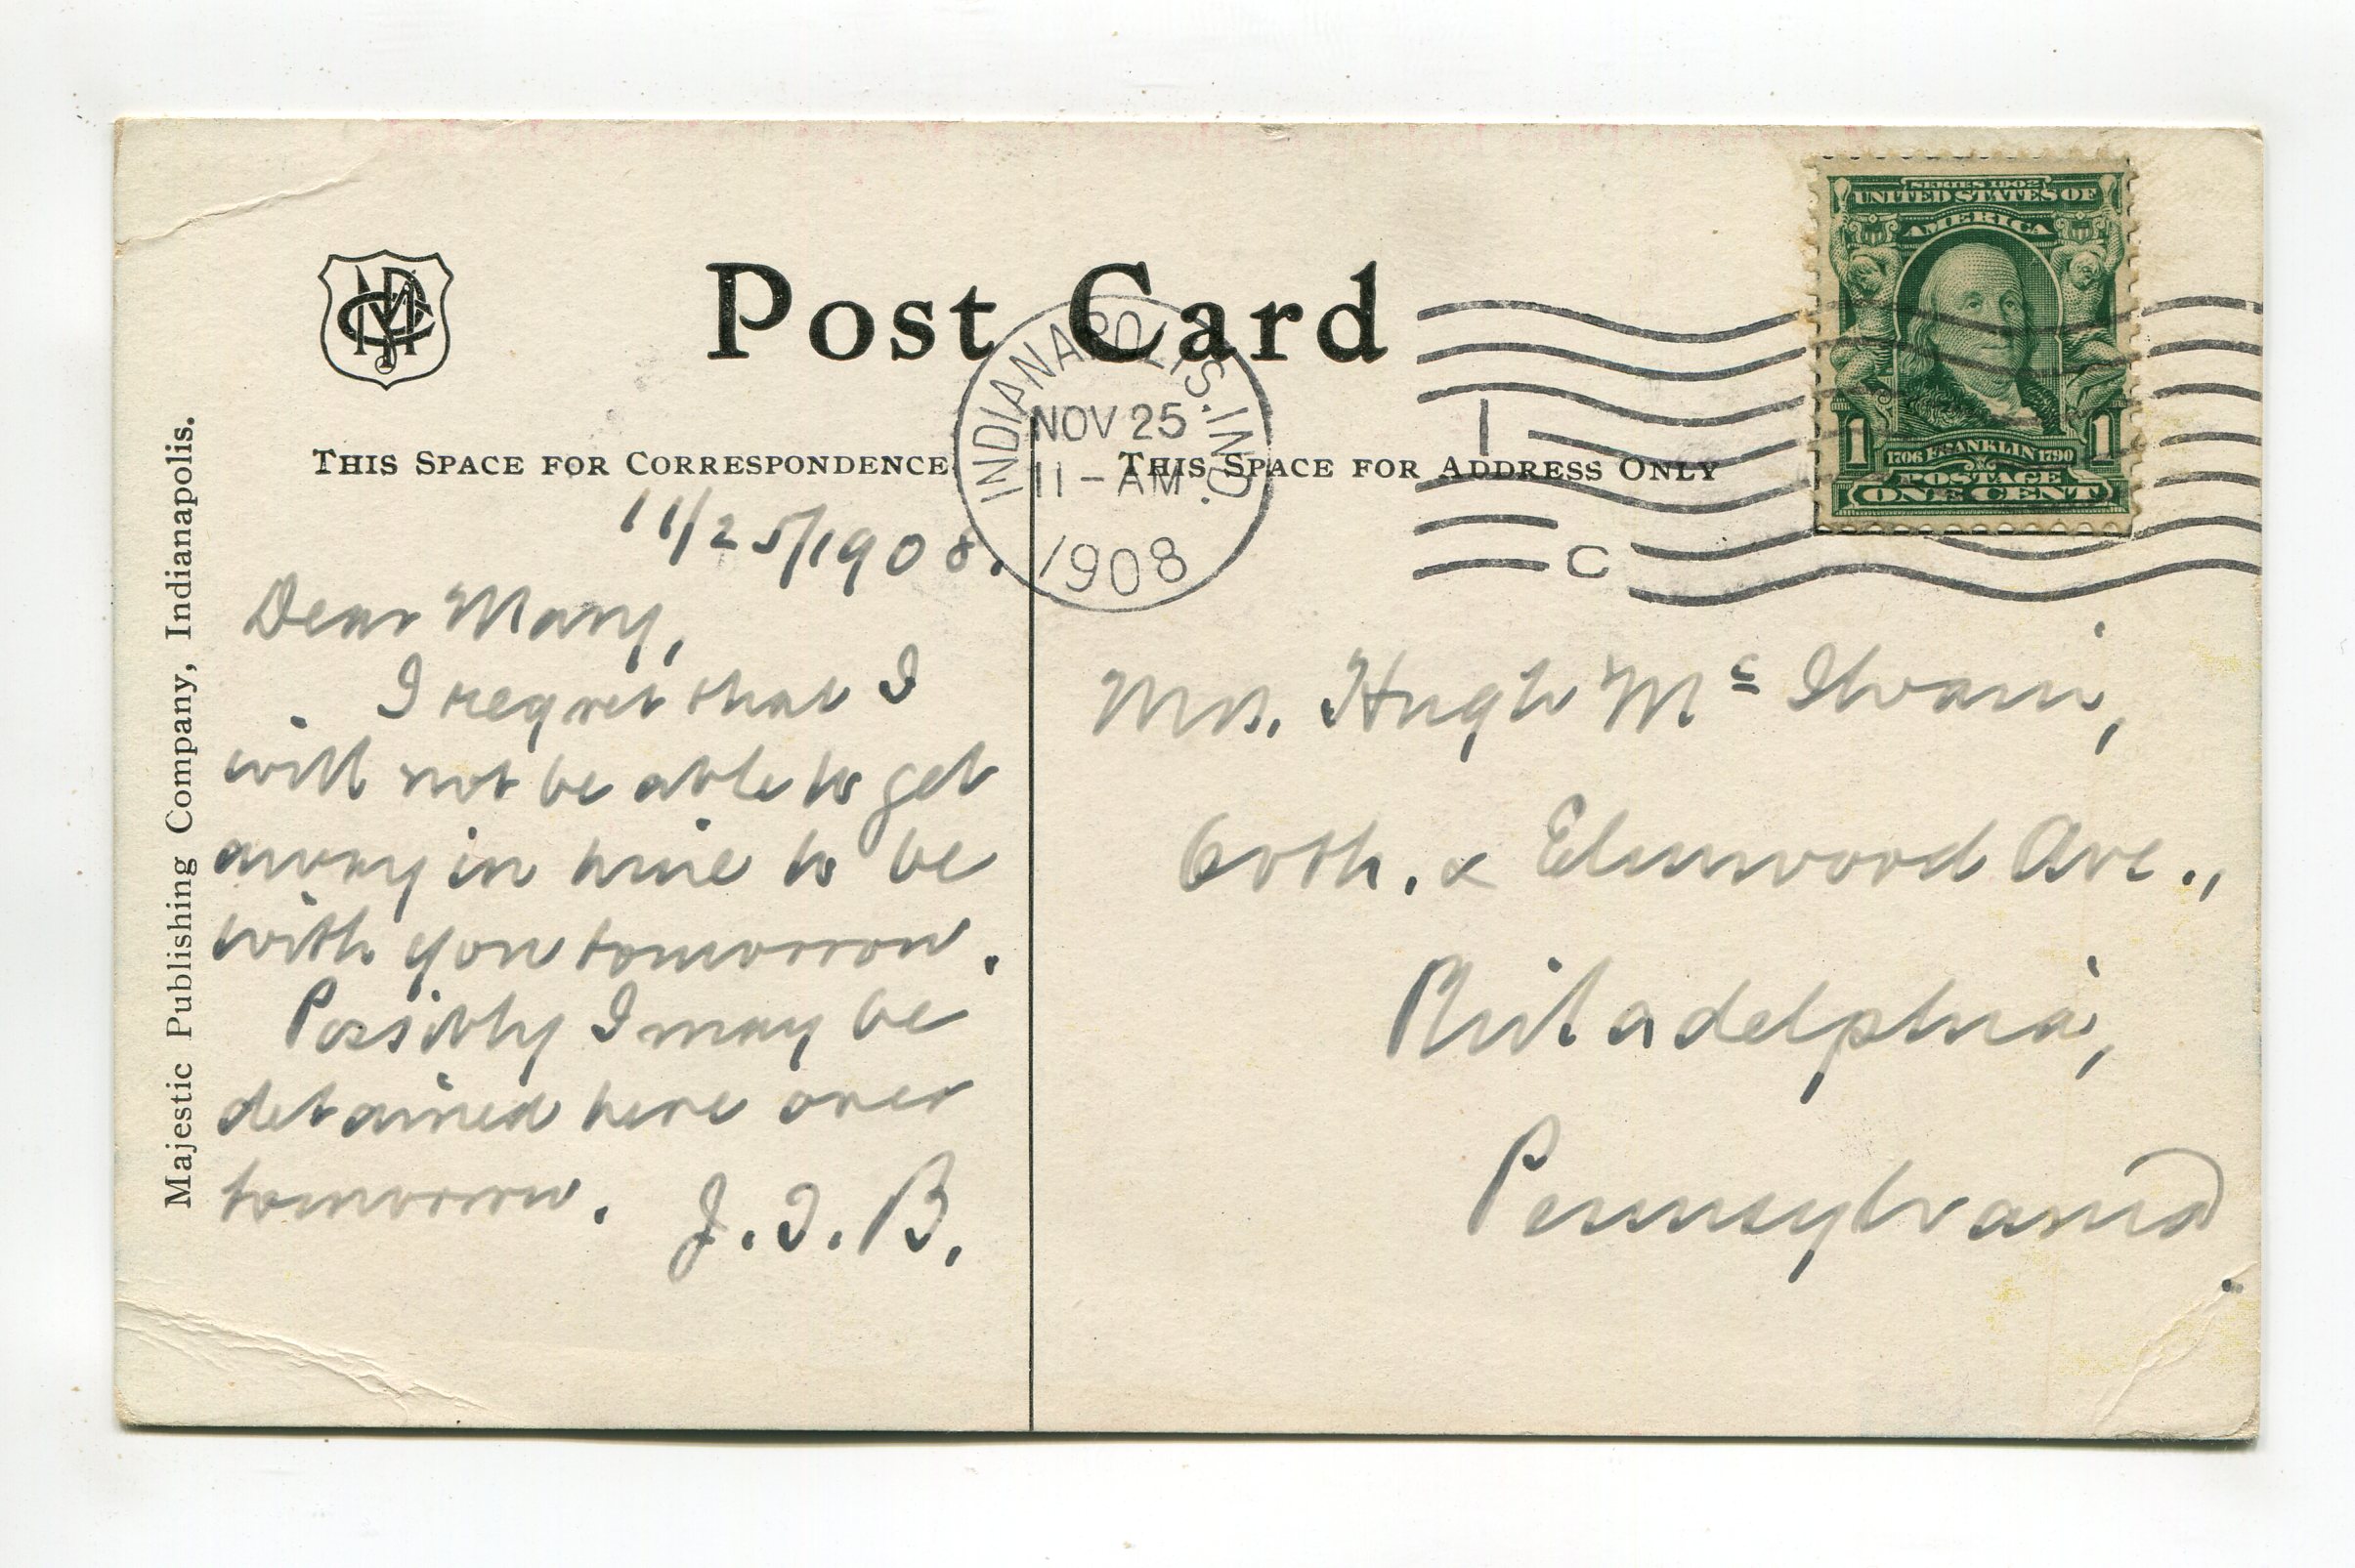 Post Card
THIS SPACE FOR CORRESPONDENCE
THIS SPACE FOR ADDRESS ONLY
Majestic Publishing Company, Indianapolis.
INDIANAPOLIS, IND.
NOV 25
11-AM
1908
1
C
SERIES 1902
UNITED STATES OF
AMERICA
1706 FRANKLIN 1790
1 1
POSTAGE
ONE CENT
11/25/1908.
Dear Mary,
I regret that I
will not be able to get
away in time to be
with you tomorrow.
Possibly I may be
detained here over
tomorrow. J.I.B.
Mrs. Hugh Mc Ilvain,
60th. & Elmwood Ave.,
Philadelphia,
Pennsylvania.